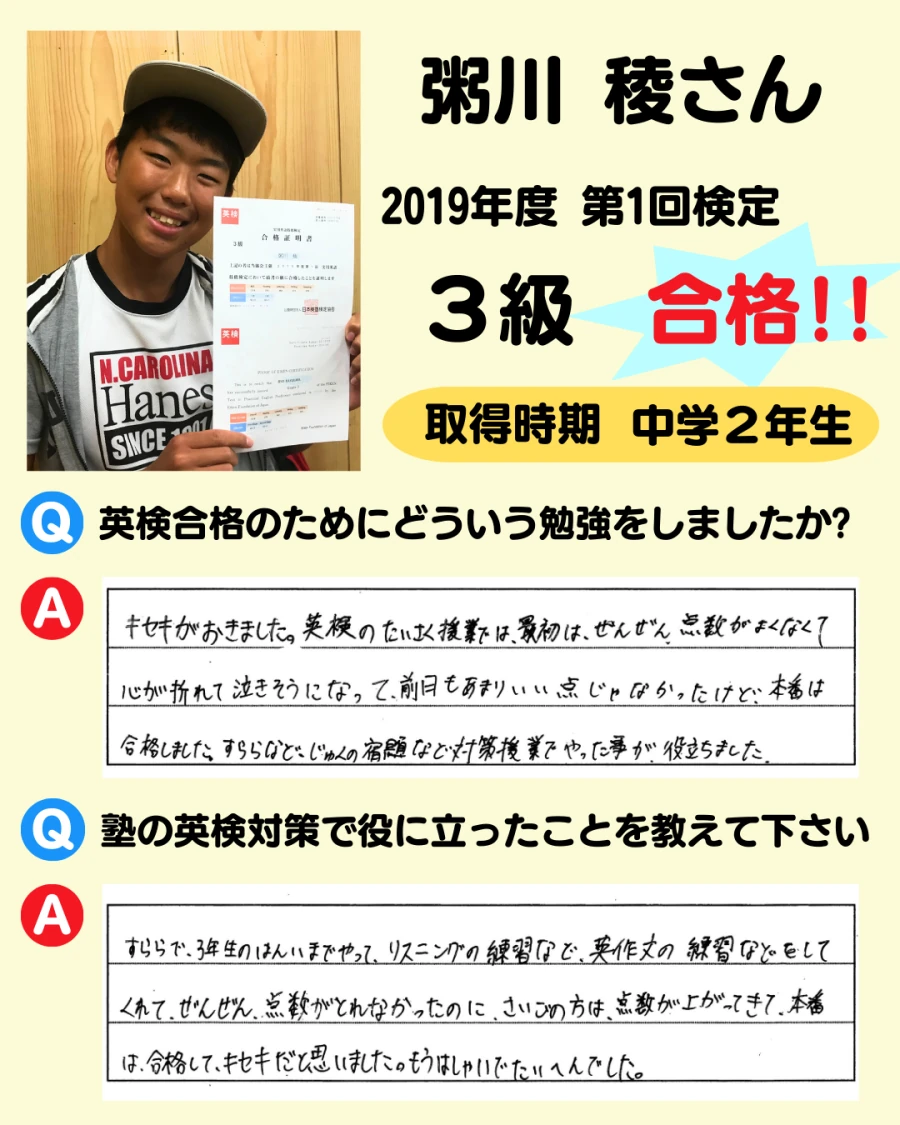 粥川 稜さん
2019年度 第1回検定
3級 合格!!
取得時期 中学2年生
英検
合格証明書
3級
日本英語検定協会
英検
N.CAROLINA
Hanes
SINCE 1901
Q 英検合格のためにどういう勉強をしましたか?
A
キセキがおきました。英検のたいさく授業では、最初は、ぜんぜん、点数がよくなくて
心が折れて泣きそうになって、前日もあまりいい点じゃなかったけど、本番は
合格しました。すららなど、じゅくの宿題など対策授業でやった事が、役立ちました。
Q 塾の英検対策で役に立ったことを教えて下さい
A
すららで、3年生のはんいまでやって、リスニングの練習など、英作文の練習などをして
くれて、ぜんぜん、点数がとれなかったのに、さいごの方は、点数が上がってきて、本番
は、合格して、キセキだと思いました。もうはしゃいでたいへんでした。